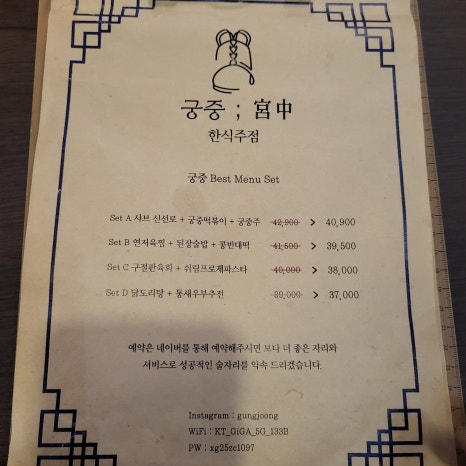 궁중 ; 宮中
한식주점
궁중 Best Menu Set
Set A 샤브 신선로 + 궁중떡볶이 + 궁중주 42,900 > 40,900
Set B 연저육찜 + 된장술밥 + 콩반대떡 41,500 > 39,500
Set C 구절판육회 + 쉬림프로제파스타 40,000 > 38,000
Set D 닭도리탕 + 통새우부추전 39,000 > 37,000
예약은 네이버를 통해 예약해주시면 보다 더 좋은 자리와
서비스로 성공적인 술자리를 약속 드리겠습니다.
Instagram : gungjoong
WiFi : KT_GiGA_5G_133B
PW : xg25zc1097